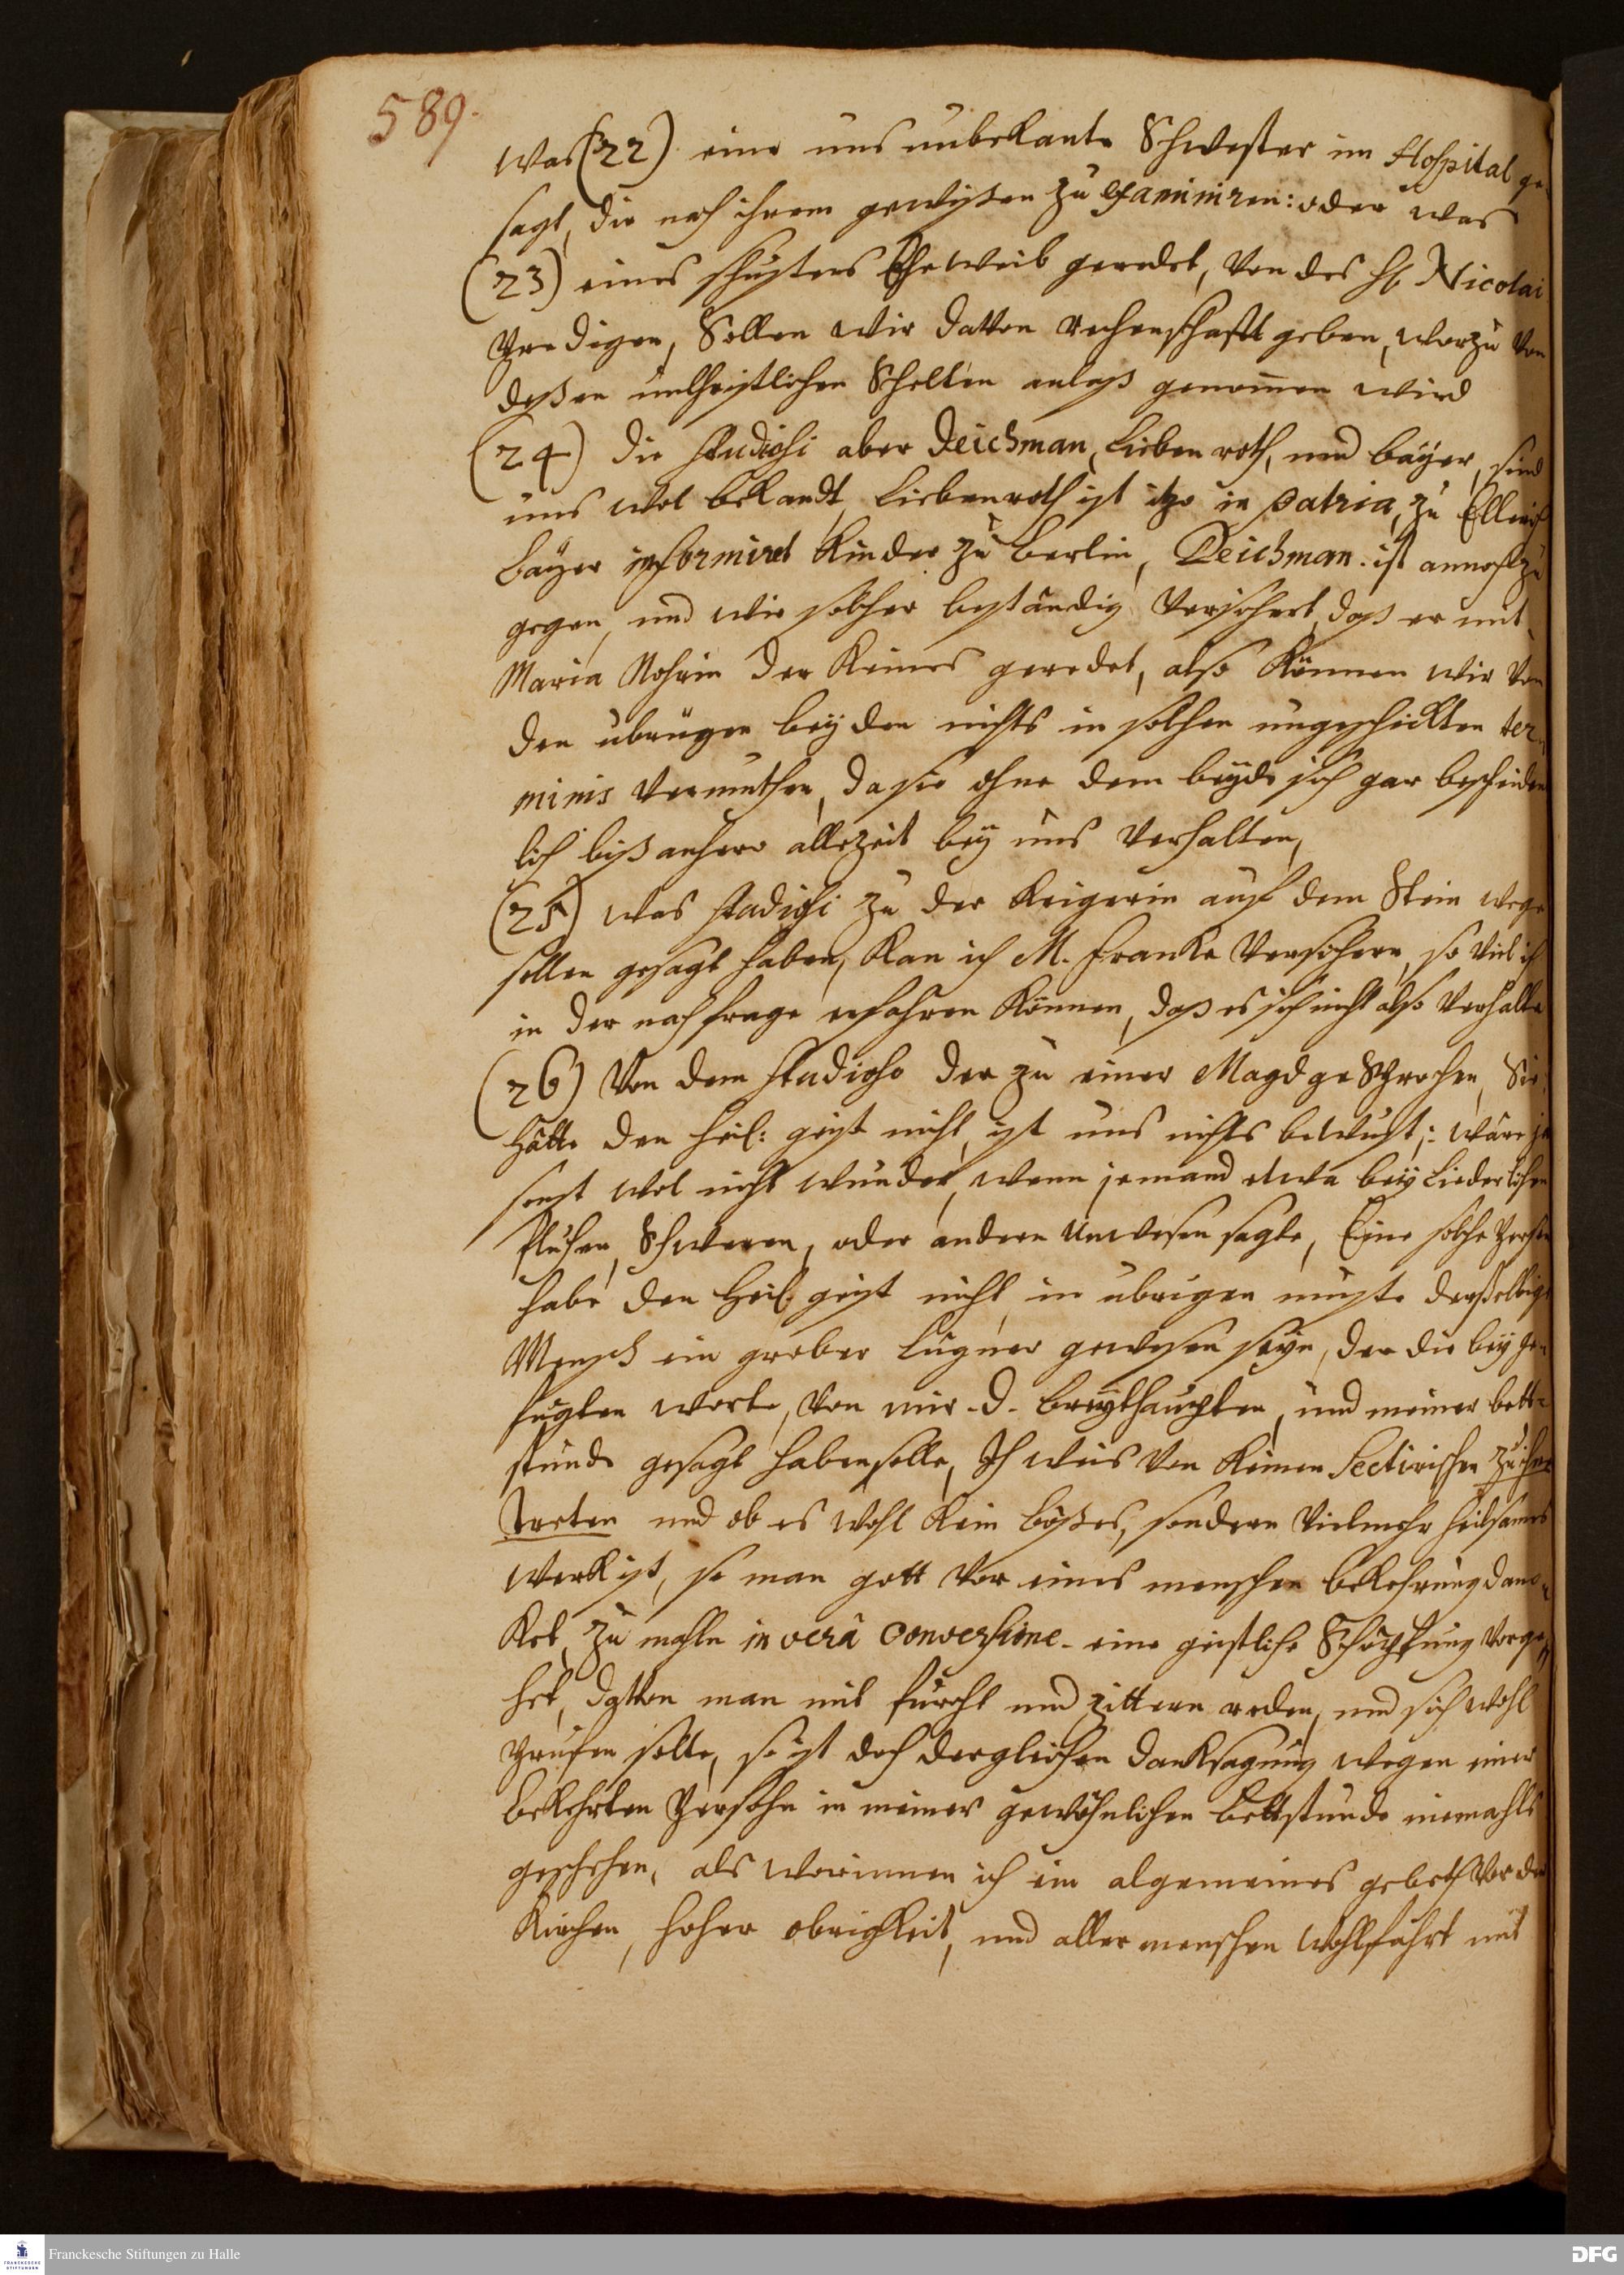 589.
was (22) eine uns unbekante Schwester im Hospital ge-
sagt, die nach ihrem gewißen zu examiniren: oder was
(23) eines schusters Eheweib geredet, von des H. Nicolai
Predigen, Sollen wir davon rechenschafft geben, worzu von
deßen unchristlichen Schelten anlaß genommen wird
(24) die studiosi aber Deichman, Liebenroth, und Bäyer, sind
uns wol bekandt, Liebenroth ist itzo in patria, zu Ellrich
Bäyer informiret Kinder zu Berlin, Deichman ist annoch zu
gegen, und wie solcher beständig versichert, daß er mit
Maria der keines geredet, also können wir von
den ubrigen beyden nichts in solchen ungeschickten ter-
minis vermuthen, da sie ohne dem beyde sich gar bescheiden
lich bißanhero allezeit bey uns verhalten,
(25) was studiosi zu der Krigerin auf dem Stein wege
sollen gesagt haben, kan ich M. Franke versichern, so viel ich
in der nachfrage erfahren können, daß es sich nicht also verhalte
(26) Von dem studioso der zu einer Magd gesprochen, Sie
hätte den heil: geist nicht, ist uns nichts bewust; wäre ja
sonst wol nicht wunder, wenn jemand etwa bey liederlichen
fluchen, Schweren, oder andern unwesen sagte, Eine solche Person
habe den Heil. geist nicht, in ubrigen muste derselbige
Mensch ein grober Lügner gewesen seyn, der die bey ge-
fügten worte, von mir D. Breythaupten, und meiner bett-
stunde gesagt haben solle, Ich weis von keinen Sectirischen
und ob es wohl kein böses, sondern vielmehr heilsames
werk ist, so man gott vor eines menschen bekehrung danc-
ket, zu mahln in verâ conversione eine geistliche Schöpfung vorge-
het, davon man mit furcht und zittern reden, und sich wohl
prüfen solte, so ist doch dergleichen danksagung wegen einer
bekehrten Persohn in meiner gewöhnlichen bettstunde niemahls
geschehen, als worinnen ich ein algemeines gebeth vor der
Kirchen, hoher obrigkeit, und aller menschen wohlfahrt mit
Franckesche Stiftungen zu Halle
DFG